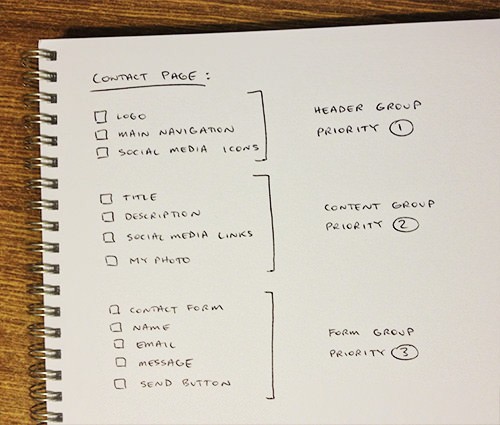 CONTACT PAGE:
LOGO
MAIN NAVIGATION
SOCIAL MEDIA ICONS
HEADER GROUP
PRIORITY 1
TITLE
DESCRIPTION
SOCIAL MEDIA LINKS
MY PHOTO
CONTENT GROUP
PRIORITY 2
CONTACT FORM
NAME
EMAIL
MESSAGE
SEND BUTTON
FORM GROUP
PRIORITY 3